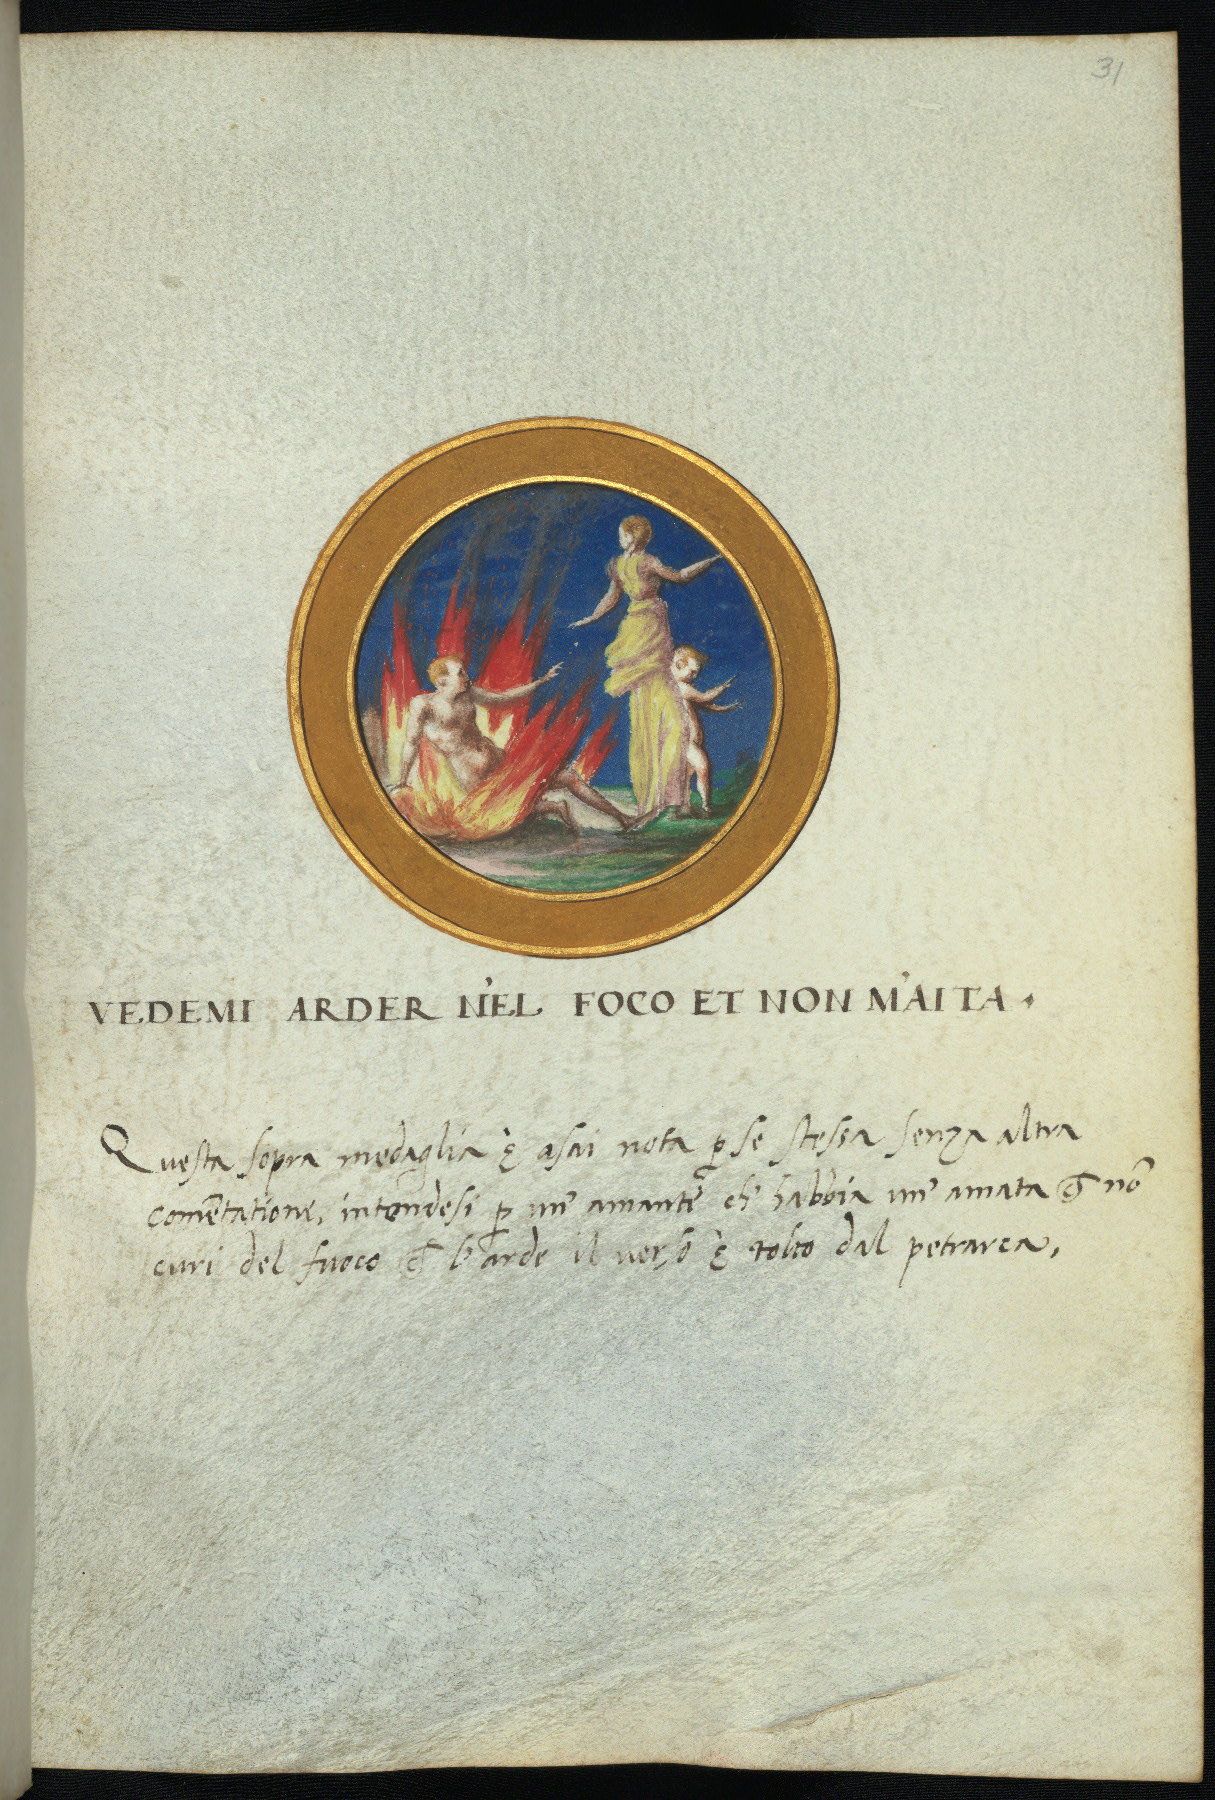 31
VEDEMI ARDER N'EL FOCO ET NON M'AITA
Questa sopra medaglia è asai nota ꝑ se stessa senza altra
comētatione, intendesi ꝑ un' amante ch' habbia un' amata nō
curi del fuoco arde il verso è tolto dal petrarca,